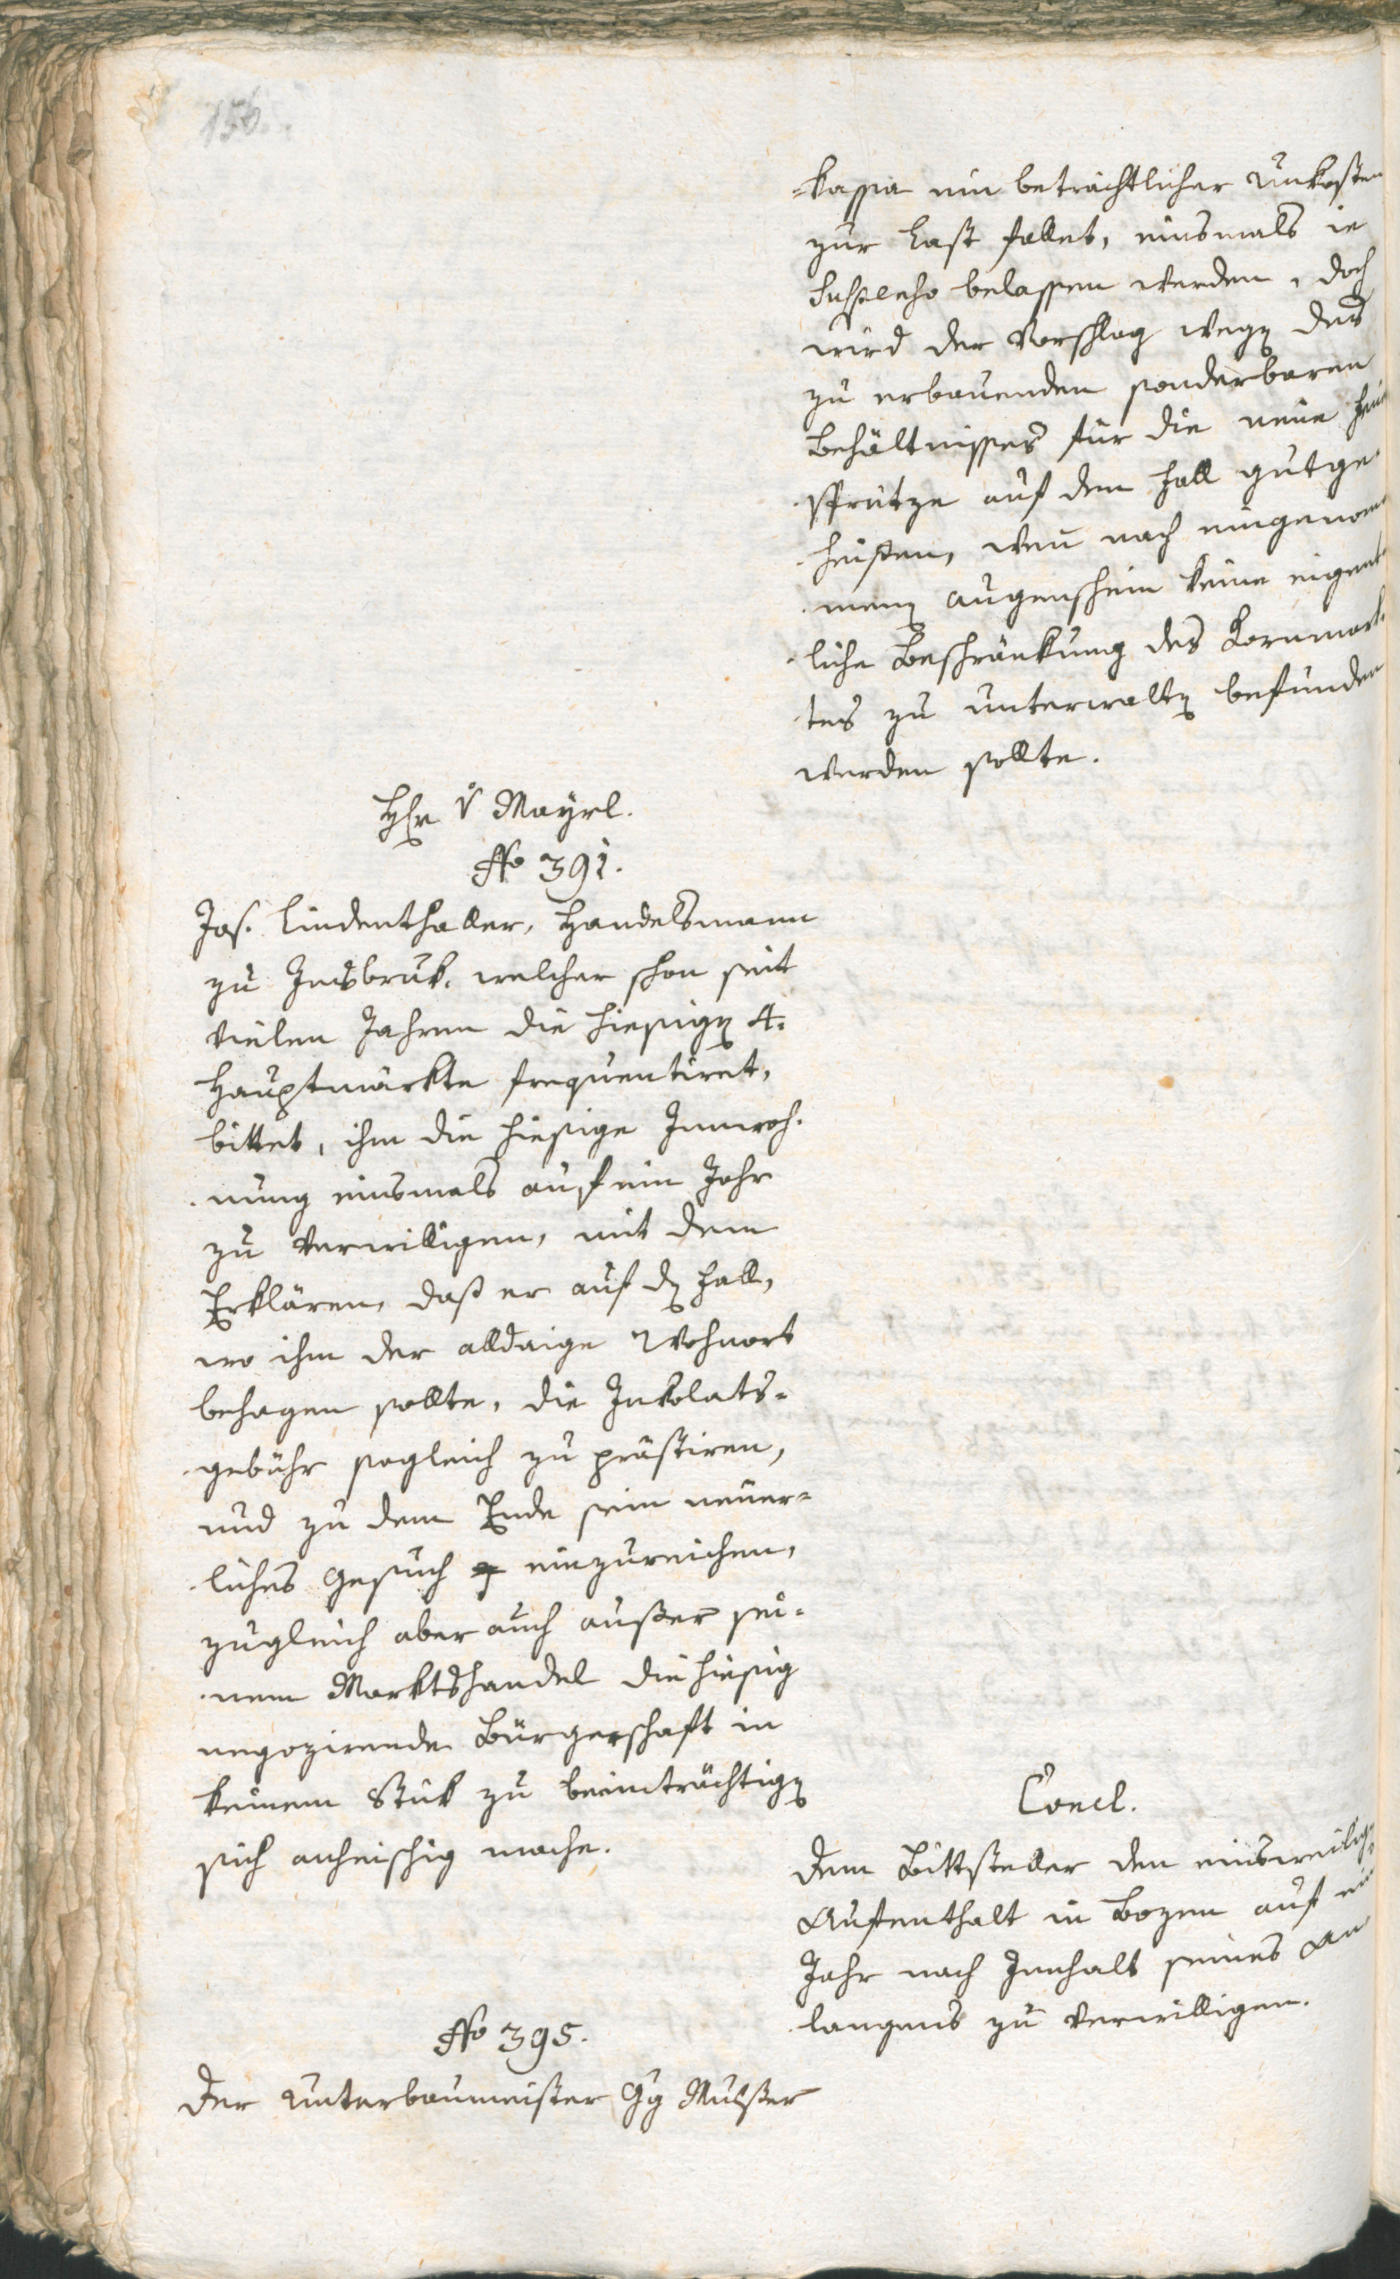 156.
-kassa ein beträchtlicher Unkosten
zur Last fallet, einsmals in
Suspenso belassen werden, doch
wird der Vorschlag wegen des
zu erbauenden sonderbaren
Behältnisses für die neue
spritze auf dem Fall gutge-
heissen, wenn nach eingenom-
menen Augenschein keine eigent-
liche Beschränkung des Kornmark-
tes zu unterwalten befunden
werden sollte.
Hr v Mayrl.
No 391.
Jos. Lindenthaller, Handelsmann
zu Insbruk, welcher schon seit
vielen Jahren die hiesigen 4.
Hauptmärkte frequentiret,
bittet, ihm die hiesige Innwoh-
nung einsmals auf ein Jahr
zu verwilligen, mit dem
Erklären, daß er auf den Fall,
wo ihm der alldaige Wohnort
behagen sollte, die Inkolats-
gebühr sogleich zu prästiren,
und zu dem Ende sein neuer-
liches Gesuch einzureichen,
zugleich aber auch ausser sei-
nem Marktshandel die hiesig
negozirende Bürgerschaft in
keinem Stük zu beeinträchtigen
sich anheischig mache.
Concl.
Dem Bittsteller den einsweiligen
Aufenthalt in Bozen auf ein
Jahr nach Innhalt seines An-
langens zu verwilligen.
No 395.
Der Unterbaumeister Gg Mulser